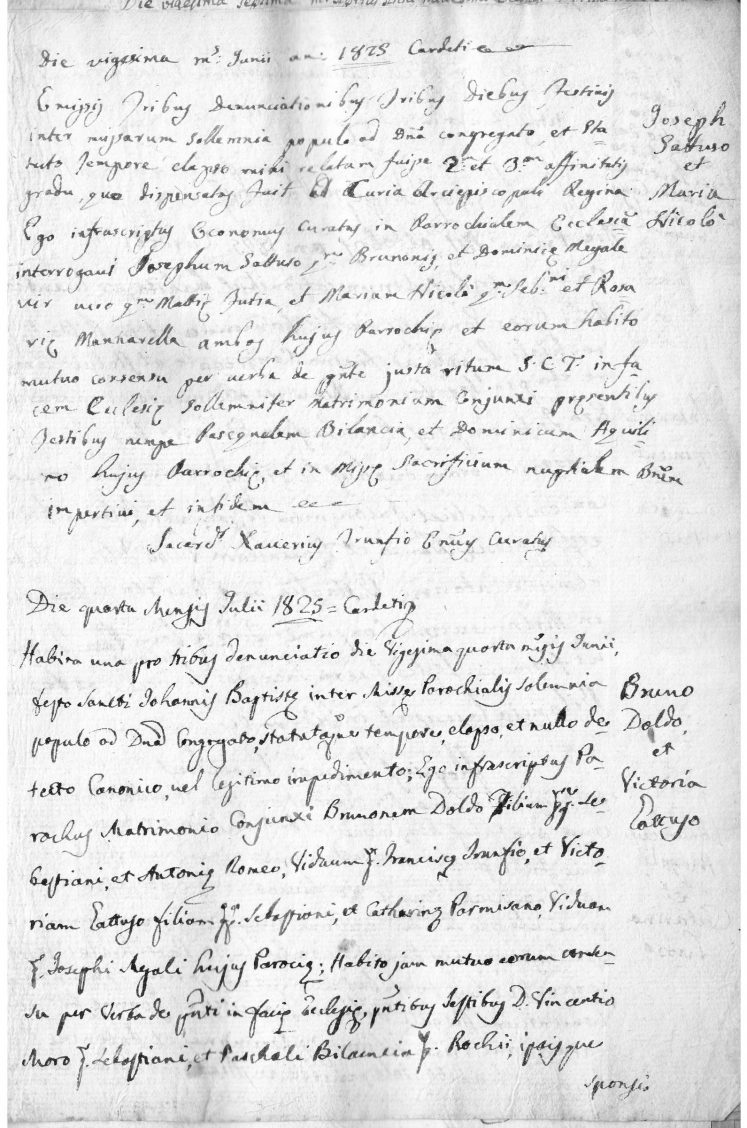 Die vigesima septima
Die vigesima m.s Junii an: 1825 Cardeti
Emissis Tribus Denunciationibus Tribus Diebus Festivis
inter missarum sollemnia populo ad Dnũ congregato, et Sta
tuto Tempore elapso mihi relatum fuisse 2.m et 3.m affinitatis
gradu, quo dispensatus fuit a Curia Arciepiscopali Regina
Ego infrascriptus Economus Curatus in Parrochialem Ecclesiã
interrogavi Josephum Sattuso qm Brunonis, et Dominicę Megale
vir vic qm Mattię Jutia, et Mariam Nicolò qm Seb.ni et Rosa
rię Mannarella ambos hujus Parrochię et eorum habito
mutuo consensu per verba de pnte justa ritum S. C. T. in fa
cem Ecclesię sollemniter matrimonium Conjunxi pręsentibus
Testibus nempe Pasqualem Bilancia, et Dominicum Aquili
no hujus Parrochię, et in Missę Sacrificium nuptialem Bnem
impertivi, et in fidem
Sacerd.s Xaverius Trunfio Ecnus Curatus
Joseph
Sattuso
et
Maria
Nicolò
Die quarta Mensis Julii 1825 = Cardetię
Habita una pro tribus denunciatio die Vigesima quarta mẽsis Junii,
festo Sancti Johannis Baptistę inter Missę Parochialis solemnia
populo ad Dnũ Congregato, statutoque tempore, elapso, et nullo de-
tecto Canonico, vel legitimo impedimento; Ego infrascriptus Pa-
rochus Matrimonio Conjunxi Brunonem Doldo filium qm Se-
bastiani, et Antonię Romeo, Viduum q. Franciscę Trunfio, et Victo-
riam Tattuso filiam qm Sebastiani, et Catharinę Parmisano, Viduam
q. Josephi Megali hujus Parocię; Habito jam mutuo eorum consen-
su per Verba de pnti in facię Ecclesię, pntibus Testibus D. Vincentio
Moro q. Sebastiani, et Paschali Bilancia q. Rochii, ipsisque
sponsis
Bruno
Doldo,
et
Victoria
Tattuso